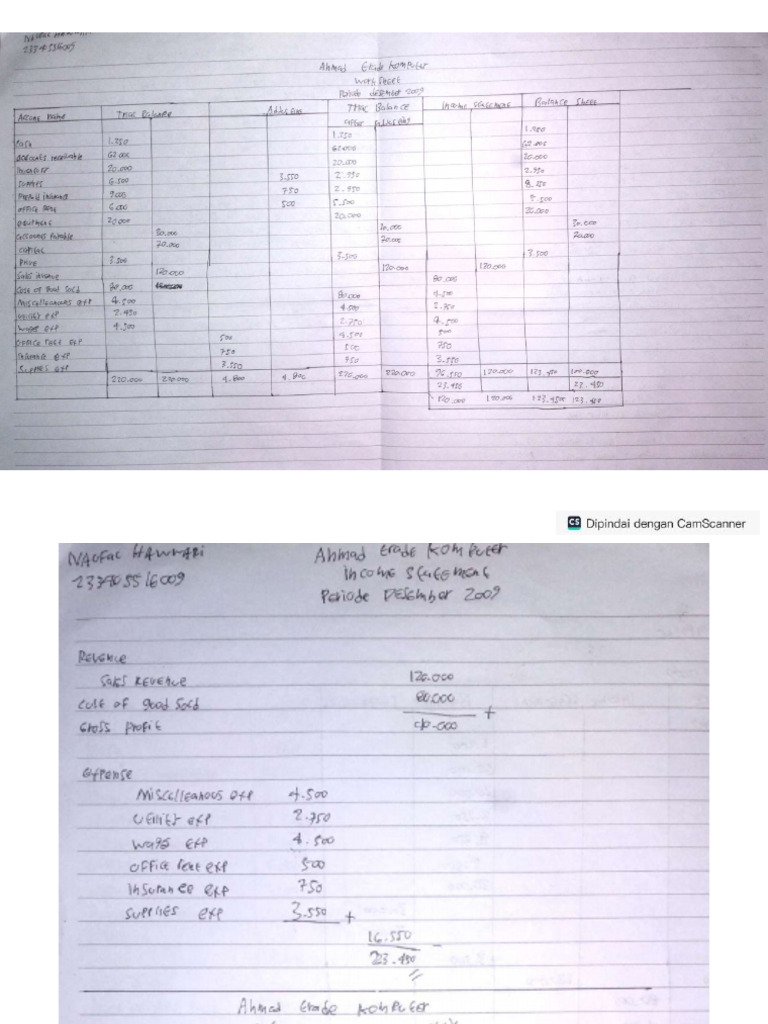 233405516009
Ahmad Erade Komputer
Work Sheet
Periode desember 2009
Account Name Trial Balance Adjustment Trial Balance Income Statement Balance Sheet
after adjustment
Cash 1.750 1.750 1.750
Accounts receivable 62.000 62.000 62.000
20.000 20.000 20.000
Supplies 6.500 3.550 2.950 2.950
Prepaid insurance 9.000 750 8.250
Office Rent 6.000 500 5.500 5.500
Equipment 20.000 20.000 20.000
Accounts Payable 30.000 30.000 30.000
Capital 70.000 70.000 70.000
Prive 3.500 3.500 3.500
Sales revenue 120.000 120.000 120.000
Cost of Good Sold 80.000 80.000 80.000
Miscellaneous exp 4.500 4.500 4.500
Utility exp 2.750 2.750
Wage exp 4.500 4.500 4.500
Office Rent exp 500 500 500
Insurance exp 750 750 750
Supplies exp 3.550 3.550
220.000 220.000 4.800 4.800 220.000 220.000 96.550 120.000 123.450 100.000
23.450 23.450
120.000 120.000 123.450 123.450
CS Dipindai dengan CamScanner
NAUFAL HAWWARI Ahmad Erade Komputer
233405516009 Income Statement
Periode DESEMber 2009
Revenue
Sales Revenue 120.000
Cost of good Sold 80.000 +
Gross Profit 40.000
Expense
Miscelleanous exp 4.500
Utility exp 2.750
Wage exp 4.500
Office Rent exp 500
Insurance exp 750
Supplies exp 3.550 +
16.550 -
223.450
Ahmad Erade Komputer